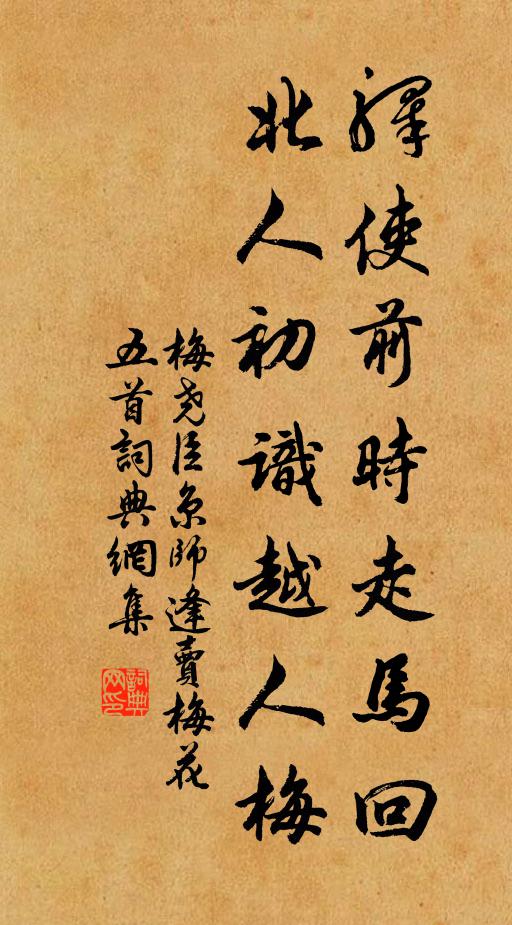 驛使前時走馬回
北人初識越人梅
梅堯臣京師逢賣梅花
五首詞典網集
詞典網印